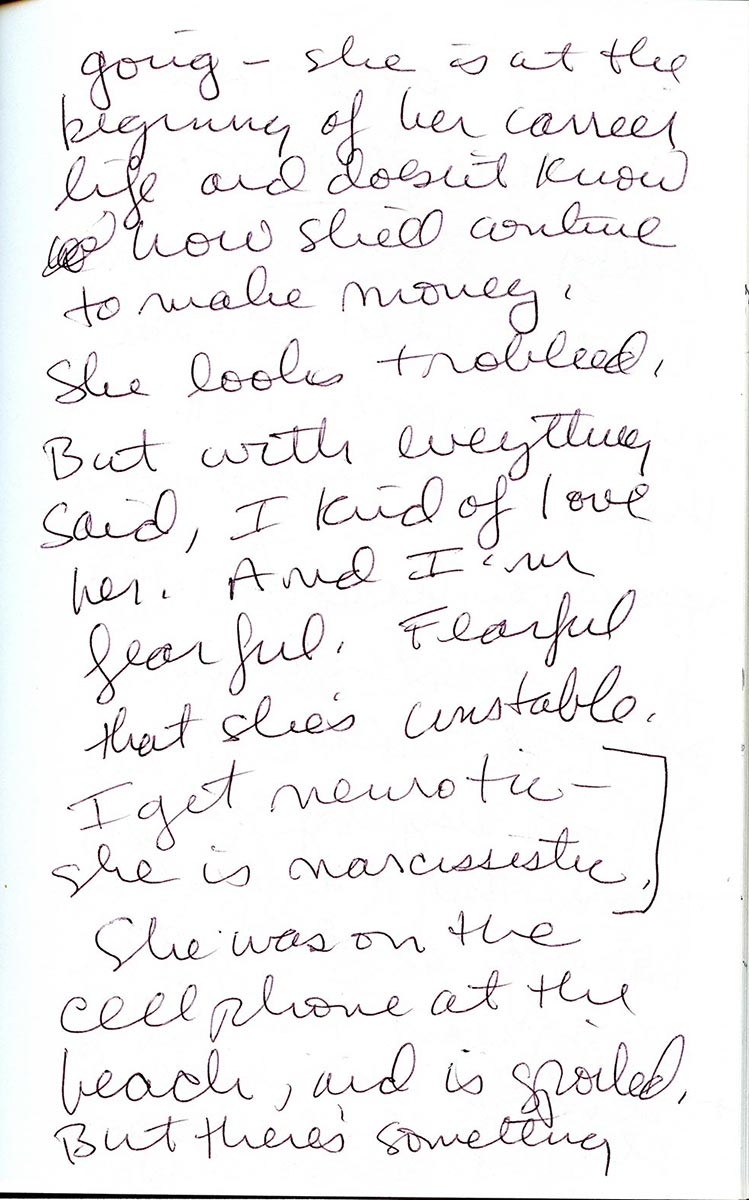 going - she is at the
beginning of her career
life and doesn't know
how she'll continue
to make money.
She looks trobled.
But with eveything
said, I kind of love
her. And I'm
fearful. Fearful
that she's unstable.
I get neurotic -
she is narcissistic.
She was on the
cell phone at the
beach, and is spoiled.
But there's something